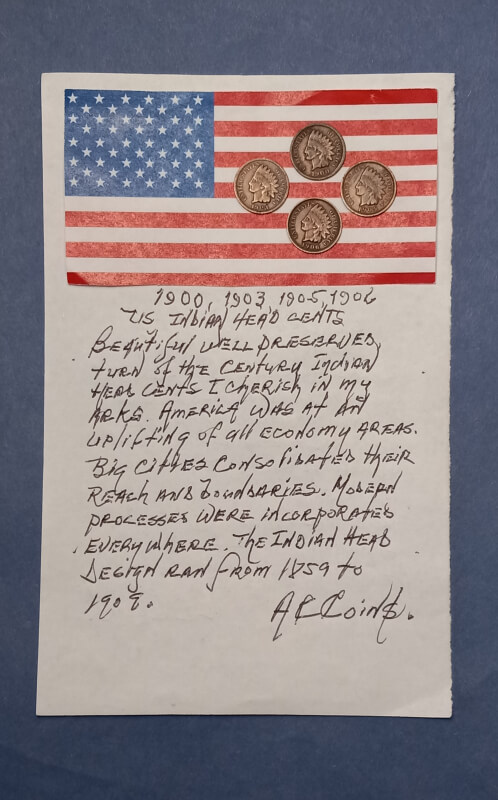 1900, 1903, 1905, 1906
US INDIAN HEAD CENTS
BEAUTIFUL WELL PRESERVED,
TURN of the CENTURY INDIAN
HEAD CENTS I CHERISH IN my
ARKS. AMERICA WAS AT AN
UPLIFTING of all ECONOMY AREAS.
BIG CITIES CONSOLIDATED THEIR
REACH AND BOUNDARIES. MODERN
PROCESSES WERE INCORPORATED
EVERYWHERE. THE INDIAN HEAD
DESIGN RAN from 1859 to
1909.
AC Coin$.